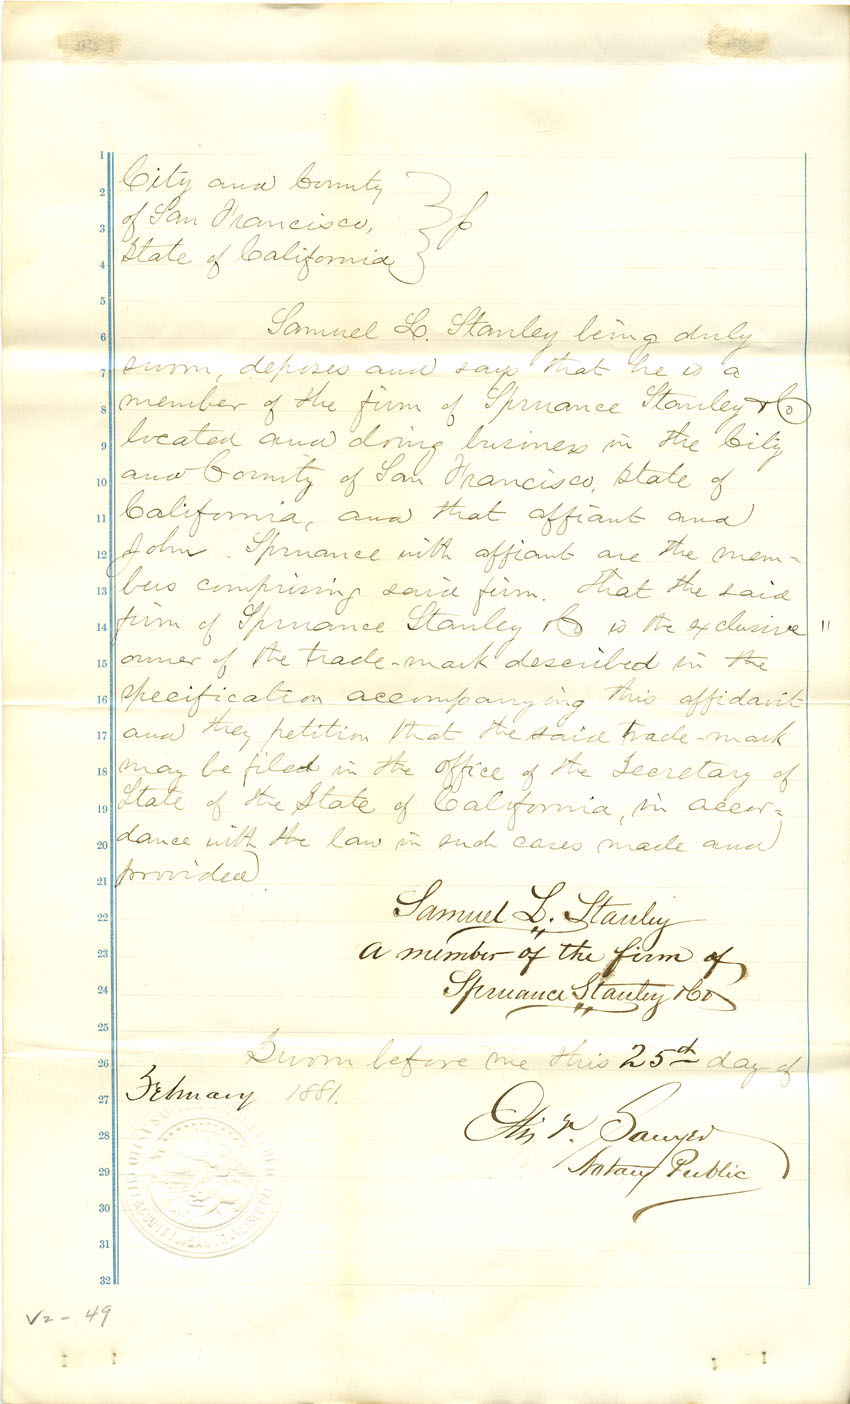 1
2
3
4
5
6
7
8
9
10
11
12
13
14
15
16
17
18
19
20
21
22
23
24
25
26
27
28
29
30
31
32
City and County
of San Francisco,
State of California
Samuel L. Stanley being duly
sworn, deposes and says that he is a
member of the firm of Spruance Stanley & Co
located and doing business in the City
and County of San Francisco, State of
California, and that affiant and
John Spruance with affiant are the mem-
bers comprising said firm. That the said
firm of Spruance Stanley & Co is the exclusive "
owner of the trade-mark described in the
specification accompanying this affidavit
and they petition that the said trade-mark
may be filed in the office of the Secretary of
State of the State of California, in accor-
dance with the law in such cases made and
provided.
Samuel L. Stanley
a member of the firm of
Spruance Stanley & Co
Sworn before me this 25th day of
February 1881.
Sawyer
Notary Public
V2 - 49